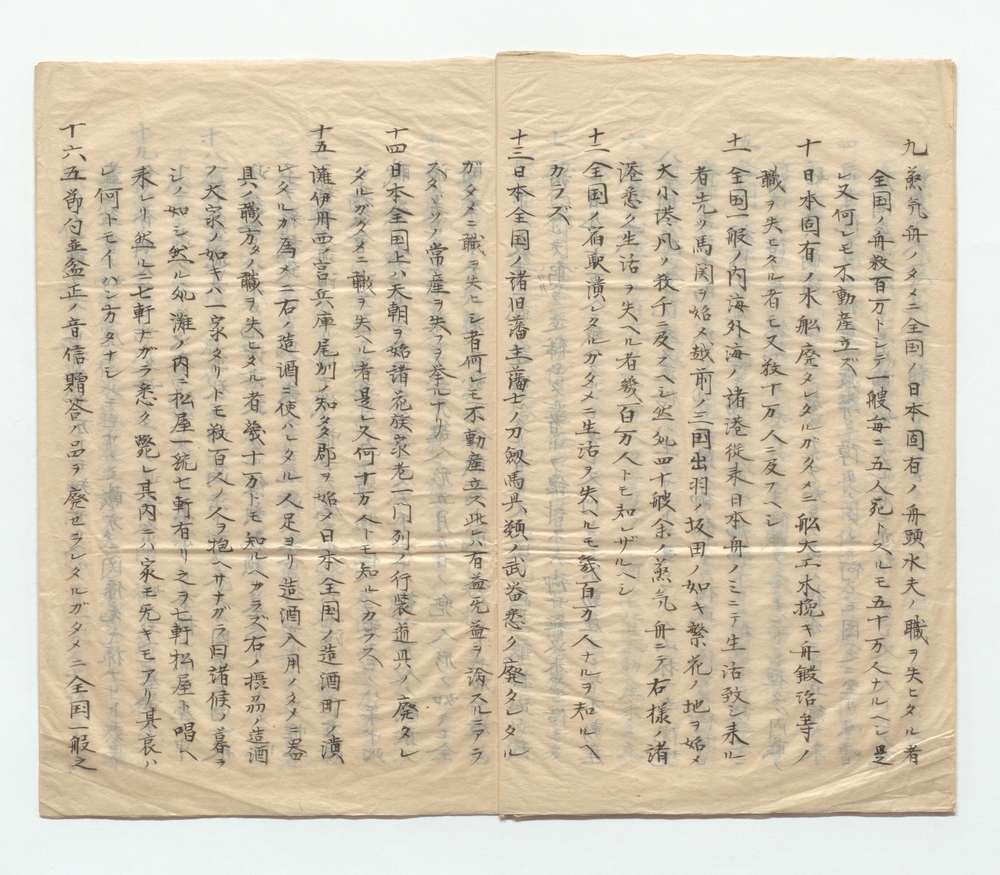 九 蒸気舟ノタメニ全国ノ日本固有ノ舟頭水夫ノ職ヲ失ヒタル者
全国ノ舟数百万トシテ一艘毎ニ五人宛トスルモ五十万人ナルヘシ是
レ又何レモ不動産立ズ
十 日本固有ノ木舩廃タレタルガタメニ舩大工木挽キ舟鍛治等ノ
職ヲ失ヒタル者モ又数十万人ニ及フヘシ
十一 全国一般ノ内海外海ノ諸港従来日本舟ノミニテ生活致シ来ル
者先ツ馬関ヲ始メ越前ノ三国出羽ノ坂田ノ如キ繁花ノ地ヲ始メ
大小港凡ソ数千ニ及フヘシ然ル処四十艘余ノ蒸気舟ニテ右様ノ諸
港悉ク生活ヲ失ヘル者幾百万人トモ知レザルヘシ
十二 全国ノ宿駅潰レタルガタメニ生活ヲ失ヘルモ幾百万人ナルヲ知ルヘ
カラズ
十三 日本全国ノ諸旧藩主藩士ノ刀劔馬具類ノ武器悉ク廃タレタル
ガタメニ職ヲ失ヒシ者何レモ不動産立ス此ハ有益无益ヲ論スルニアラ
スタヾソノ常産ヲ失フヲ挙ルナリ
十四 日本全国上ハ天朝ヲ始諸花族家老一門列ノ行装道具ノ廃タレ
タルガタメニ職ヲ失ヘル者是レ又何十万人トモ知ルヘカラス
十五 灘伊丹西宮兵庫尾州ノ知多郡ヲ始メ日本全国ノ造酒町ノ潰
レタルガ為メニ右ノ造酒ニ使ハレタル人足ヨリ造酒入用ノタメニ器
具ノ職方多ノ職ヲ失ヒタル者幾十万トモ知ルヘカラズ右ノ摂州ノ造酒
ノ大家ノ如キハ一家タリトモ数百人ノ人ヲ抱ヘサナガラ旧諸候ノ暮ラ
シノ如シ然ル処灘ノ内ニ松屋一統七軒有リ之ヲ七軒松屋ト唱ヘ
来レリ然ルニ七軒ナガラ悉ク斃レ其内ニハ家モ无キモアリ其哀ハ
レ何トモイハン方タナシ
十六 五節句並盆正ノ音信贈答ノ品ヲ廃セラレタルガタメニ全国一般之